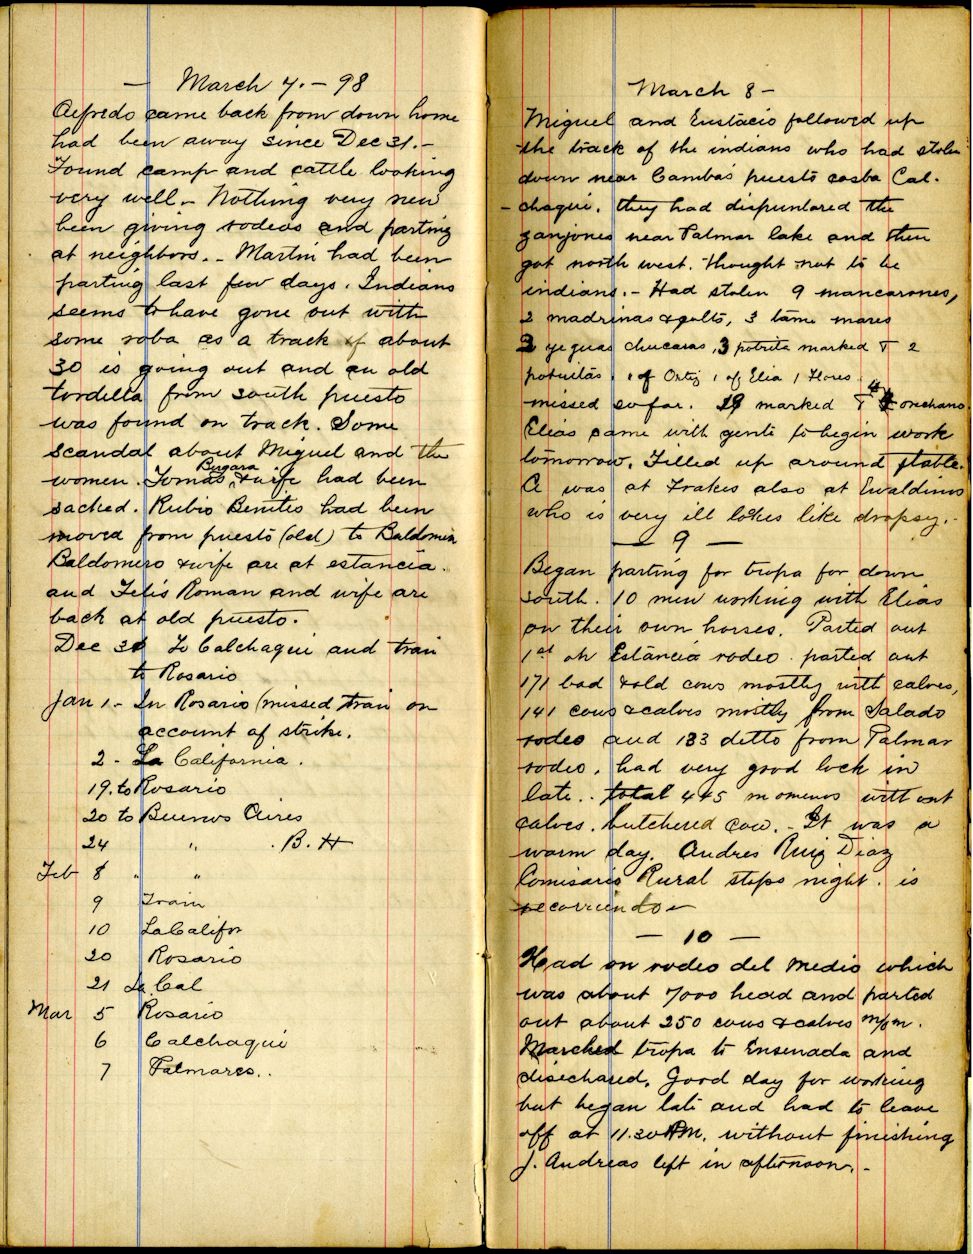 — March 7. – 98
Alfredo came back from down home
had been away since Dec 31. –
Found camp and cattle looking
very well. – Nothing very new
been giving rodeos and parting
at neighbors. – Martin had been
parting last few days. Indians
seems to have gone out with
some roba as a track of about
30 is going out and an old
tordella from south puesto
was found on track. Some
scandal about Miguel and the
women. Tomas Bergara & wife had been
sacked. Rubio Benites had been
moved from puesto (old) to Baldomin
Baldomero & wife are at estancia.
and Felis Roman and wife are
back at old puesto.
Dec 31 To Calchaqui and train
to Rosario
Jan 1 – In Rosario (missed train on
account of strike.
2 – La California.
19. to Rosario
20 to Buenos Aires
24 " . B. H
Feb 8 " "
9 Train
10 La Califor
20 Rosario
21 La Cal
Mar 5 Rosario
6 Calchaqui
7 Palmares..
March 8 –
Miguel and Eustacio followed up
the track of the indians who had stolen
down near Camba's puesto costa Cal-
– chaqui. they had dispuntared the
zanjones near Palmar lake and then
got north west. thought not to be
indians. – Had stolen 9 mancarones,
2 madrinas & potts, 3 tame mares
3 yeguas chucaras, 3 potrita marked T 2
potritas. 1 of Ortiz 1 of Elia 1 Flores.
missed so far. 19 marked T 4 orechano
Elias came with gente to begin work
tomorrow. Filled up around stable.
A was at Frakes also at Ewaldinos
who is very ill lokes like dropsy. –
— 9 —
Began parting for tropa for down
south. 10 men working with Elias
on their own horses. Parted out
1st oh Estancia rodeo. parted out
171 bad & old cows mostly with calves,
141 cows & calves mostly from Salado
rodeo and 133 ditto from Palmar
rodeo. had very good lock in
late.. total 445 momenos without
calves. butchered cow. – It was a
warm day. Andres Ruiz Diaz
Comisario Rural stops night. is
recorriendo –
— 10 —
Had on rodeo del medio which
was about 7000 head and parted
out about 250 cows & calves m/m.
Marched tropa to Ensenada and
disechased. Good day for working
but began late and had to leave
off at 11.30 AM. without finishing
J. Andreas left in afternoon. –